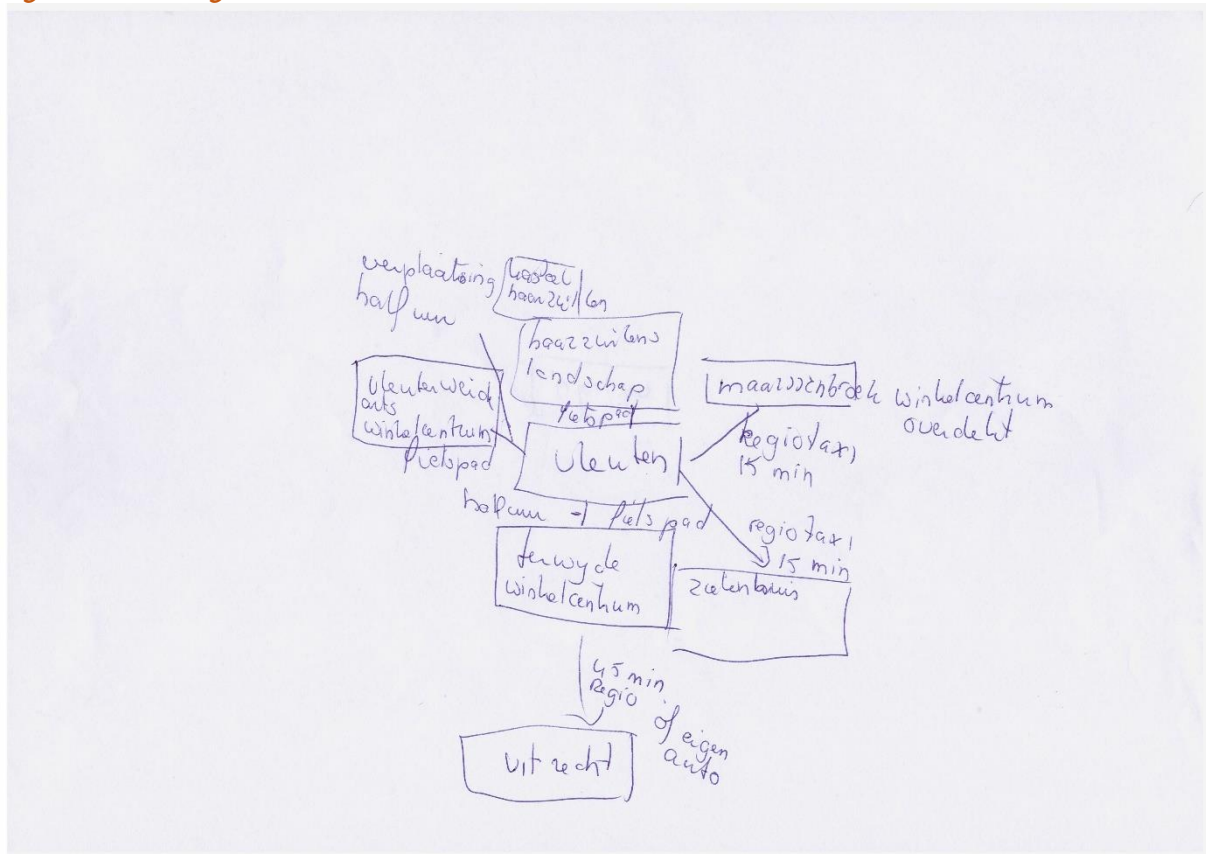 verplaatsing
half uur
kasteel
haarzuilen
haarzuilens
landschap
fietspad
vleuterweide
arts
winkelcentrum
fietspad
vleuten
maarssenbroek winkelcentrum
overdekt
Regiotaxi
15 min
half uur
fietspad
regiotaxi
15 min
terwyde
winkelcentrum
ziekenhuis
45 min
Regio of eigen
auto
Utrecht